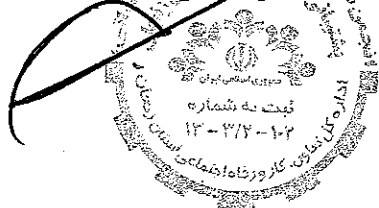 جمهوری اسلامی ایران
ثبت به شماره
۱۳-۳/۲-۱۰۲
اداره کل تعاون، کار و رفاه اجتماعی استان